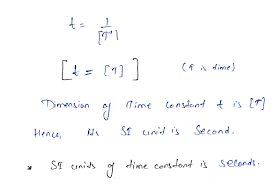 t = 1 / [T⁻¹]
[ t = [T] ] (T is time)
Dimension of Time constant t is [T]
Hence, its SI unit is Second.
* SI units of time constant is seconds.